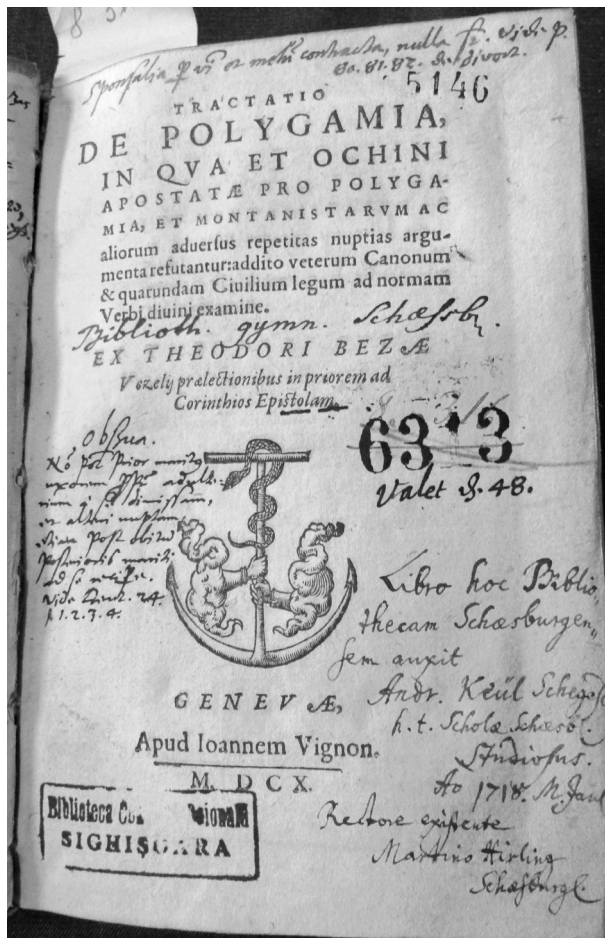 Sponsalia p vim et metum contracta, nulla st. Vide p.
80. 81. 82. de divort.
5146
TRACTATIO
DE POLYGAMIA,
IN QVA ET OCHINI
APOSTATÆ PRO POLYGA-
MIA, ET MONTANISTARVM AC
aliorum aduersus repetitas nuptias argu-
menta refutantur: addito veterum Canonum
& quarundam Ciuilium legum ad normam
Verbi diuini examine.
Biblioth. gymn. Schæssb.
EX THEODORI BEZÆ
Vezelij prælectionibus in priorem ad
Corinthios Epistolam.
6313
Valet d. 48.
Obserua.
prior
uxorem
dimissam,
etiam post obitum
posterioris mariti
vide Deut. 24.
1. 2. 3. 4.
Libro hoc Biblio-
thecam Schæsburgen-
sem auxit
Andr. Keül Scheges.
h. t. Scholæ Schæsb.
Studiosus.
Ao 1718. M. Jan
Rectore existente
Martino Hirling
Schæsburg.
GENEVÆ,
Apud Ioannem Vignon.
M. DCX.
Biblioteca
SIGHIȘOARA